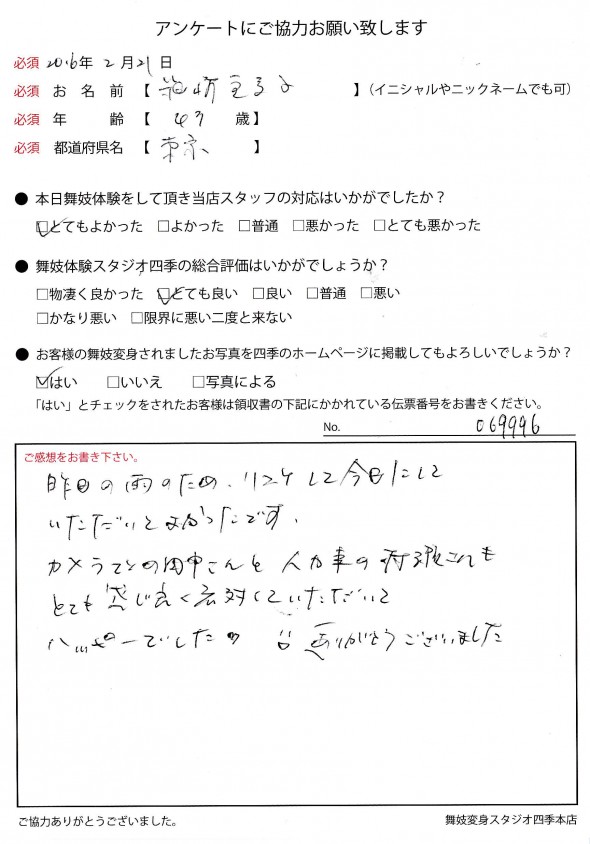 アンケートにご協力お願い致します
必須 2016年 2月21日
必須 お名前【 】(イニシャルやニックネームでも可)
必須 年 齢【 47 歳】
必須 都道府県名【 東京 】
● 本日舞妓体験をして頂き当店スタッフの対応はいかがでしたか?
☑とてもよかった □よかった □普通 □悪かった □とても悪かった
● 舞妓体験スタジオ四季の総合評価はいかがでしょうか?
□物凄く良かった ☑とても良い □良い □普通 □悪い
□かなり悪い □限界に悪い二度と来ない
● お客様の舞妓変身されましたお写真を四季のホームページに掲載してもよろしいでしょうか?
☑はい □いいえ □写真による
「はい」とチェックをされたお客様は領収書の下記にかかれている伝票番号をお書きください。
No. 069996
ご感想をお書き下さい。
昨日の雨のため、リスケして今日にして
いただいてよかったです。
カメラマンの田中さんも人力車の
とても感じ良く応対していただいて
ハッピーでした ありがとうございました
ご協力ありがとうございました。
舞妓変身スタジオ四季本店